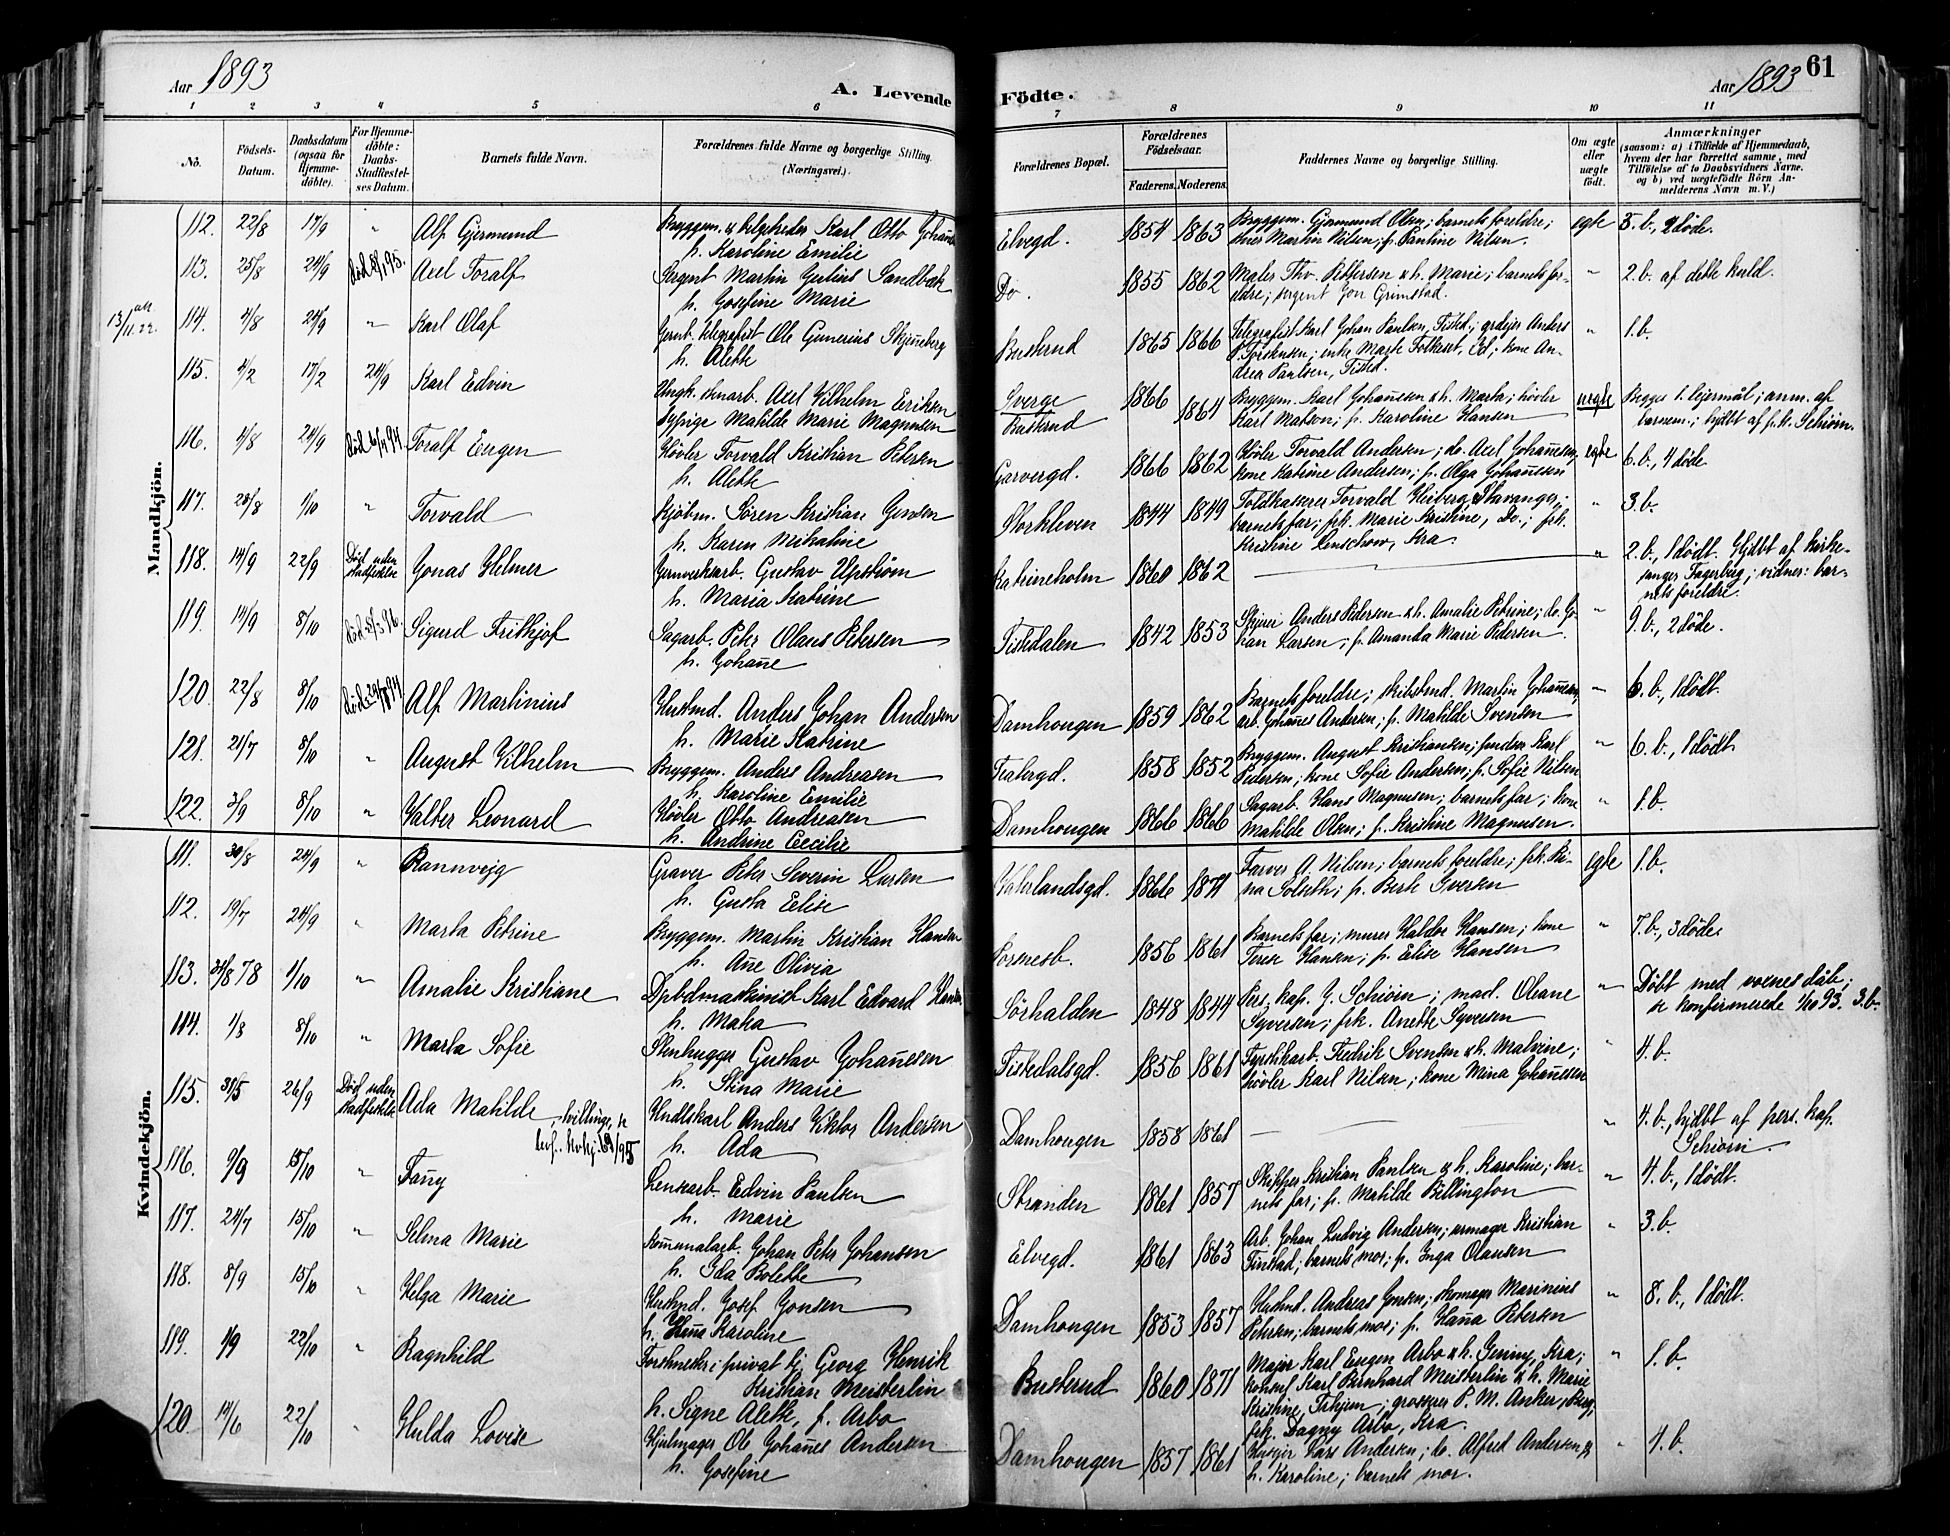 Aar 1893
A. Levende Födte.
Aar 1893
61
1 2 3 4 5 6 7 8 9 10 11
No.
Födsels-Datum.
Daabsdatum (ogsaa for Hjemme-döbte).
For Hjemme-döbte: Daabs-Stadfæstel-ses Datum.
Barnets fulde Navn.
Forældrenes fulde Navne og borgerlige Stilling. (Næringsvei.)
Forældrenes Bopæl.
Forældrenes Födselsaar.
Faderens. Moderens.
Faddernes Navne og borgerlige Stilling.
Om ægte eller uægte födt.
Anmærkninger (saasom: a) i Tilfælde af Hjemmedaab, hvem der har forrettet samme, med Tilföielse af to Daabsvidners Navne. og b) ved uægtefödte Börn An-melderens Navn m. V.)
Mandkjön.
112. 22/8 17/9 " Alf Gjermund
h. Karoline Emilie
Elvegd. 1854 1863 Bryggem. Gjermund Olsen; barnets foreldre; Martin Nilsen; p. Pauline Nilsen. egte 5. b., 2 döde.
113. 25/8 24/9 Axel Toralf
Sergent Martin Julius Sandbæk
h. Josefine Marie
Do. 1855 1862 Maler Thv. Pettersen & h. Marie; barnets for-
eldre; sergent Jon Grimstad. " 2. b. af dette kuld.
114. 4/8 24/9 " Karl Olaf
h. Alette
Buskrud 1865 1866 Telegrafist Karl Johan Paulsen, Tisted.;
drea Paulsen, Tisted. " 1. b.
115. 4/2 17/2 24/9 Karl Edvin
Ungk. stenarb. Axel Vilhelm Eriksen
Sypige Matilde Marie Magnussen
Sverge Buskrud 1866 1864 Bryggem. Karl Johannesen & h. Marta; hövler
Karl Matson; p. Karoline Hansen uegte Begges 1. lejermål; anm. af
barnem.; hjdbt af p. k. Schiörn.
116. 4/8 24/9 Toralf Eugen
Hövler Torvald Kristian Petersen
h. Alette
Garvergd. 1866 1862 Hövler Torvald Andersen; do. Axel Johannesen,
kone Katrine Andersen; p. Olga Johannesen egte 6. b., 4 döde
117. 28/8 1/10 " Torvald
Kjöbm. Sören Kristian Jensen
h. Karen Mikaline
Storkleven 1844 1849 Toldkasserer Torvald Heiberg Stavanger;
barnets far; frk. Marie Kristine, Do.; frk.
Kristine Lenschow, Kra " 3. b.
118. 14/9 22/9 Död uden stadfestelse Jonas Helmer
Jernverksarb. Gustav Upström
h. Maria Katrine
Katrineholm 1860 1862 " 2. b., 1 dödt. Hjdbt af kirke-
sanger Fagerberg; vidner: bar-
nets foreldre.
119. 14/9 8/10 Sigurd Fritkjof
Sagarb. Peter Olaus Petersen
h. Johanne
Tistedalen 1842 1853 Anders Pedersen & h. Amalie Petrine; do. Jo-
han Larsen; p. Amanda Marie Pedersen. " 9. b., 2 döde.
120. 22/8 8/10 Alf Martinius
Husmd. Anders Johan Andersen
h. Marie Katrine
Damhougen 1859 1862 Barnets foreldre; skibstmd. Martin Johansen,
arb. Johannes Andersen; p. Matilde Svensen " 6. b., 1 dödt.
121. 21/7 8/10 " August Vilhelm
Bryggem. Anders Andreasen
h. Karoline Emilie
1858 1852 Bryggem. August Kristiansen; Karl
Pedersen; kone Sofie Andersen; p. Sofie Nilsen " 6. b., 1 dödt
122. 3/9 8/10 " Valter Leonard
Hövler Otto Andreasen
h. Andrine Cecilie
Damhougen 1866 1866 Sagarb. Hans Magnusen; barnets far; kone
Matilde Olsen; p. Kristine Magnusen. " 1. b.
Kvindekjön.
111. 30/8 24/9 " Rannveig
Graver Peter Severin Larsen
h. Gusta Elise
Vaterlandsgd. 1866 1871 Farver A. Nilsen; barnets foreldre; frk. Ri-
na Solseth; p. Berte Iversen egte 1. b.
112. 19/7 24/9 " Marta Petrine
Bryggem. Martin Kristian Hansen
h. Ane Olivia
1856 1861 Barnets far; murer Haldor Hansen; kone
Terese Hansen; p. Elise Hansen " 7. b., 3 döde
113. 31/8 78 1/10 " Amalie Kristiane
Karl Edvard
Sörhalden 1848 1844 Pers. kap. J. Schiörn; mad. Oleane
Syversen; frk. Anette Syversen " Döbt med voxenes dåb;
konfirmerede 1/10 93. 3. b.
114. 1/8 8/10 " Marta Sofie
Stenhugger Gustav Johannesen
h. Stina Marie
Tistedalsgd. 1856 1861 Fyrstikarb. Fredrik Svensen & h. Malvine;
hövler Karl Nilsen; kone Mina Johannesen " 4. b.
115. 31/5 26/9 Död uden stadfestelse Ada Matilde
Anders Viktor Andersen
h. Ada
Damhougen 1858 1861 " 4. b., hjdbt af pers. kap.
Schiörn.
116. 9/9 15/10 " Fanny
Lensearb. Edvin Paulsen
h. Marie
Stranden 1861 1857 Skipper Kristian Paulsen & h. Karoline; bar-
nets far; p. Matilde Billington " 4. b., 1 dödt.
117. 24/7 15/10 " Selma Marie
Kommunalarb. Johan Peter Johansen
h. Ida Bolette
Elvegd. 1861 1863 Arb. Johan Ludvig Andersen; urmager Kristian
Finstad; barnets mor; p. Inga Olausen " 3. b.
118. 8/9 15/10 " Helga Marie
Husmd. Josef Jonsen
Karoline
Damhougen 1853 1857 Husmd. Andreas Jensen; skomager Marinius
Petersen; barnets mor; p. Hanna Petersen " 8. b., 1 dödt.
119. 1/9 22/10 " Ragnhild
Forstmester i privat tj. Georg Henrik
Kristian Meisterlin
h. Signe Alette, f. Arbo
Buskrud 1860 1871 Major Karl Eugen Arbo & h. Jenny, Kra;
konsul Karl Bernhard Meisterlin & h. Marie
Kristine, Trhjem; grosserer P. M. Anker,
frk. Dagny Arbo, Kra. " 1. b.
120. 14/6 22/10 " Hulda Lovise
Hjulmager Ole Johannes Andersen
h. Josefine
Damhougen 1857 1861 Lars Andersen; do. Alfred Andersen &
h. Karoline; barnets mor. " 4. b.